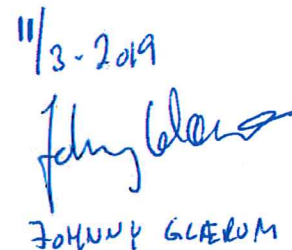 11/3-2019
Johnny Glærum
JOHNNY GLÆRUM